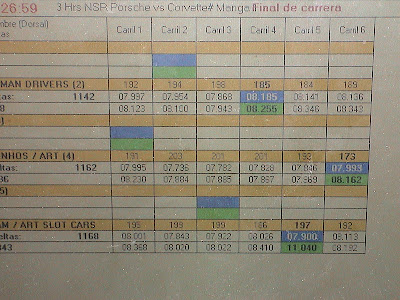 26:59 3 Hrs NSR Porsche vs Corvette# Manga Final de carrera
mbre (Dorsal) Carril 1 Carril 2 Carril 3 Carril 4 Carril 5 Carril 6
tas:
MAN DRIVERS (2) 192 194 198 185 184 186
1142 07.997 07.954 07.868 08.185 08.141 08.136
8 08.123 08.150 07.943 08.255 08.346 08.343
)
NHOS / ART (4) 191 203 201 201 192 173
eltas: 1162 07.995 07.736 07.782 07.828 07.846 07.993
36 08.230 07.884 07.885 07.897 07.989 08.162
5)
AM / ART SLOT CARS 195 199 199 186 197 192
eltas: 1168 08.001 07.843 07.922 08.026 07.900 08.113
343 08.368 08.020 08.022 08.410 11.040 08.192